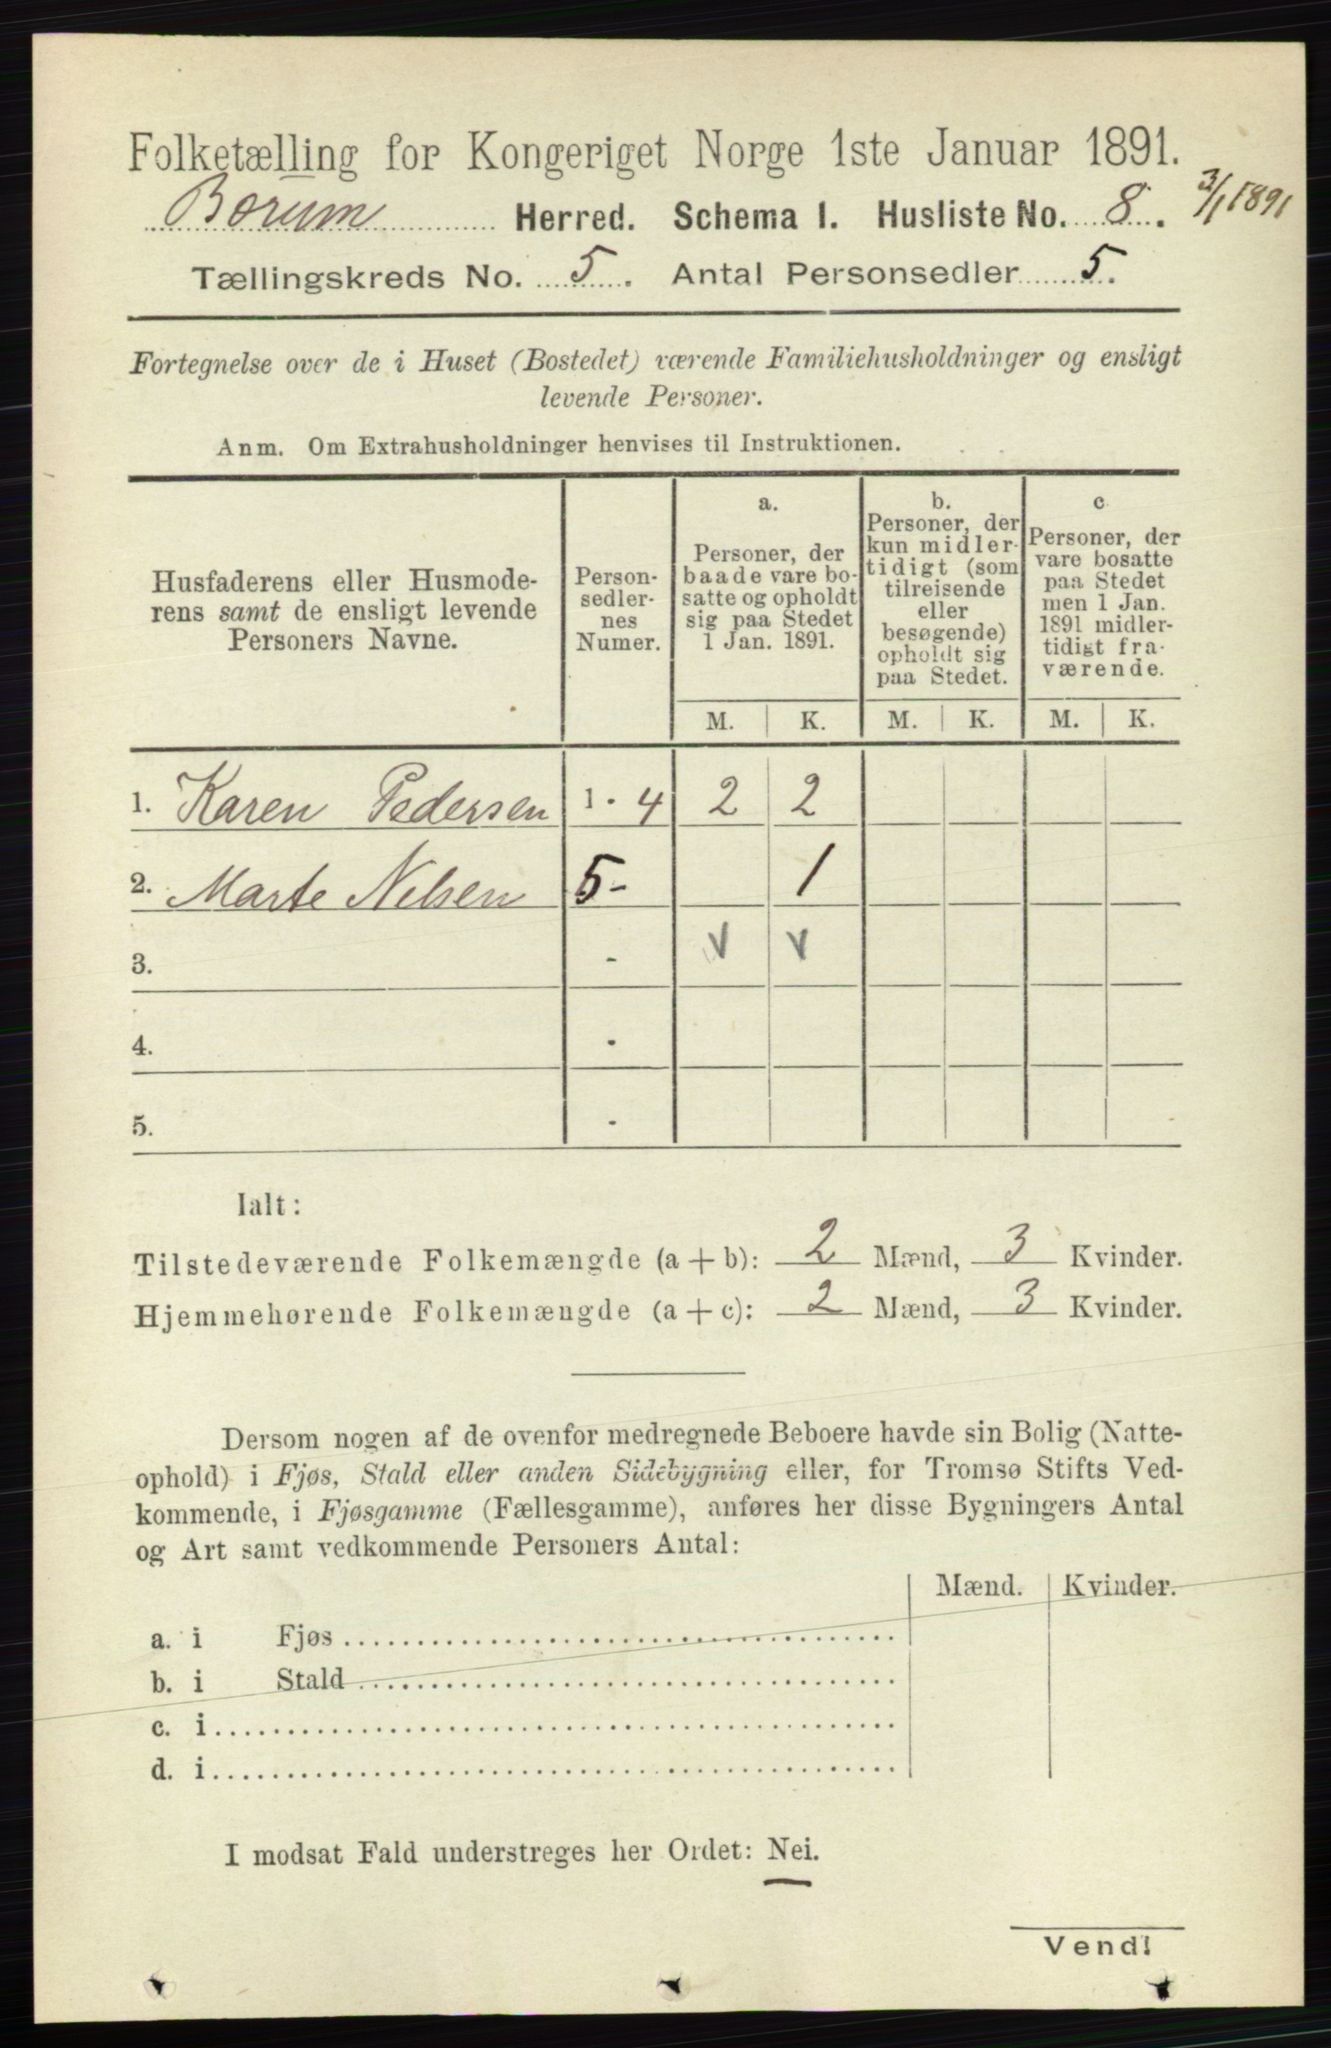 Folketælling for Kongeriget Norge 1ste Januar 1891.
Borum Herred. Schema 1. Husliste No. 8. 3/1 1891
Tællingskreds No. 5. Antal Personsedler 5.
Fortegnelse over de i Huset (Bostedet) værende Familiehusholdninger og ensligt
levende Personer.
Anm. Om Extrahusholdninger henvises til Instruktionen.
Husfaderens eller Husmode-
rens samt de ensligt levende
Personers Navne.
Person-
sedler-
nes
Numer.
a.
Personer, der
baade vare bo-
satte og opholdt
sig paa Stedet
1 Jan. 1891.
b.
Personer, der
kun midler-
tidigt (som
tilreisende
eller
besøgende)
opholdt sig
paa Stedet.
c
Personer, der
vare bosatte
paa Stedet
men 1 Jan.
1891 midler-
tidigt fra-
værende.
M. K. M. K. M. K.
1. Karen Pedersen 1 - 4 2 2
2. Marte Nelsen 5 - 1
3. - v v
4. -
5. -
Ialt:
Tilstedeværende Folkemængde (a + b): 2 Mænd, 3 Kvinder.
Hjemmehørende Folkemængde (a + c): 2 Mænd, 3 Kvinder.
Dersom nogen af de ovenfor medregnede Beboere havde sin Bolig (Natte-
ophold) i Fjøs, Stald eller anden Sidebygning eller, for Tromsø Stifts Ved-
kommende, i Fjøsgamme (Fællesgamme), anføres her disse Bygningers Antal
og Art samt vedkommende Personers Antal:
Mænd. Kvinder.
a. i Fjøs
b. i Stald
c. i
d. i
I modsat Fald understreges her Ordet: Nei.
Vend!